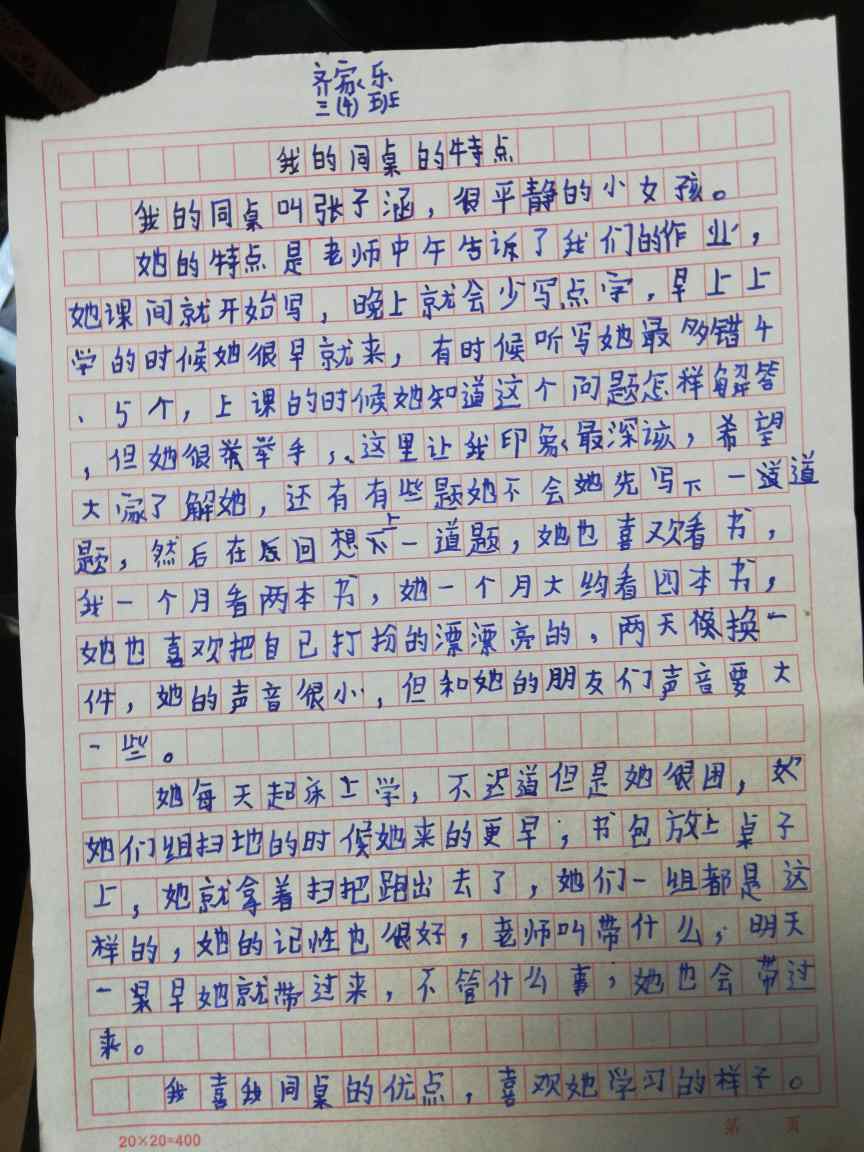 齐家乐
三(4)班
我的同桌的特点
我的同桌叫张子涵，很平静的小女孩。
她的特点是老师中午告诉了我们的作业，
她课间就开始写，晚上就会少写点字，早上上
学的时候她很早就来，有时候听写她最多错4
、5个，上课的时候她知道这个问题怎样解答
，但她很举手，、这里让我印象最深该，希望
大家了解她，还有有些题她不会她先写下一道道
题，然后在后回想上一道题，她也喜欢看书，
我一个月看两本书，她一个月大约看四本书，
她也喜欢把自己打扮的漂漂亮的，两天候换一
件，她的声音很小，但和她的朋友们声音要大
一些。
她每天起床上学，不迟道但是她很困，
她们组扫地的时候她来的更早，书包放上桌子
上，她就拿着扫把跑出去了，她们一组都是这
样的，她的记性也很好，老师叫带什么，明天
一早早她就带过来，不管什么事，她也会带过
来。
我喜我同桌的优点，喜欢她学习的样子。
20×20=400
第 页